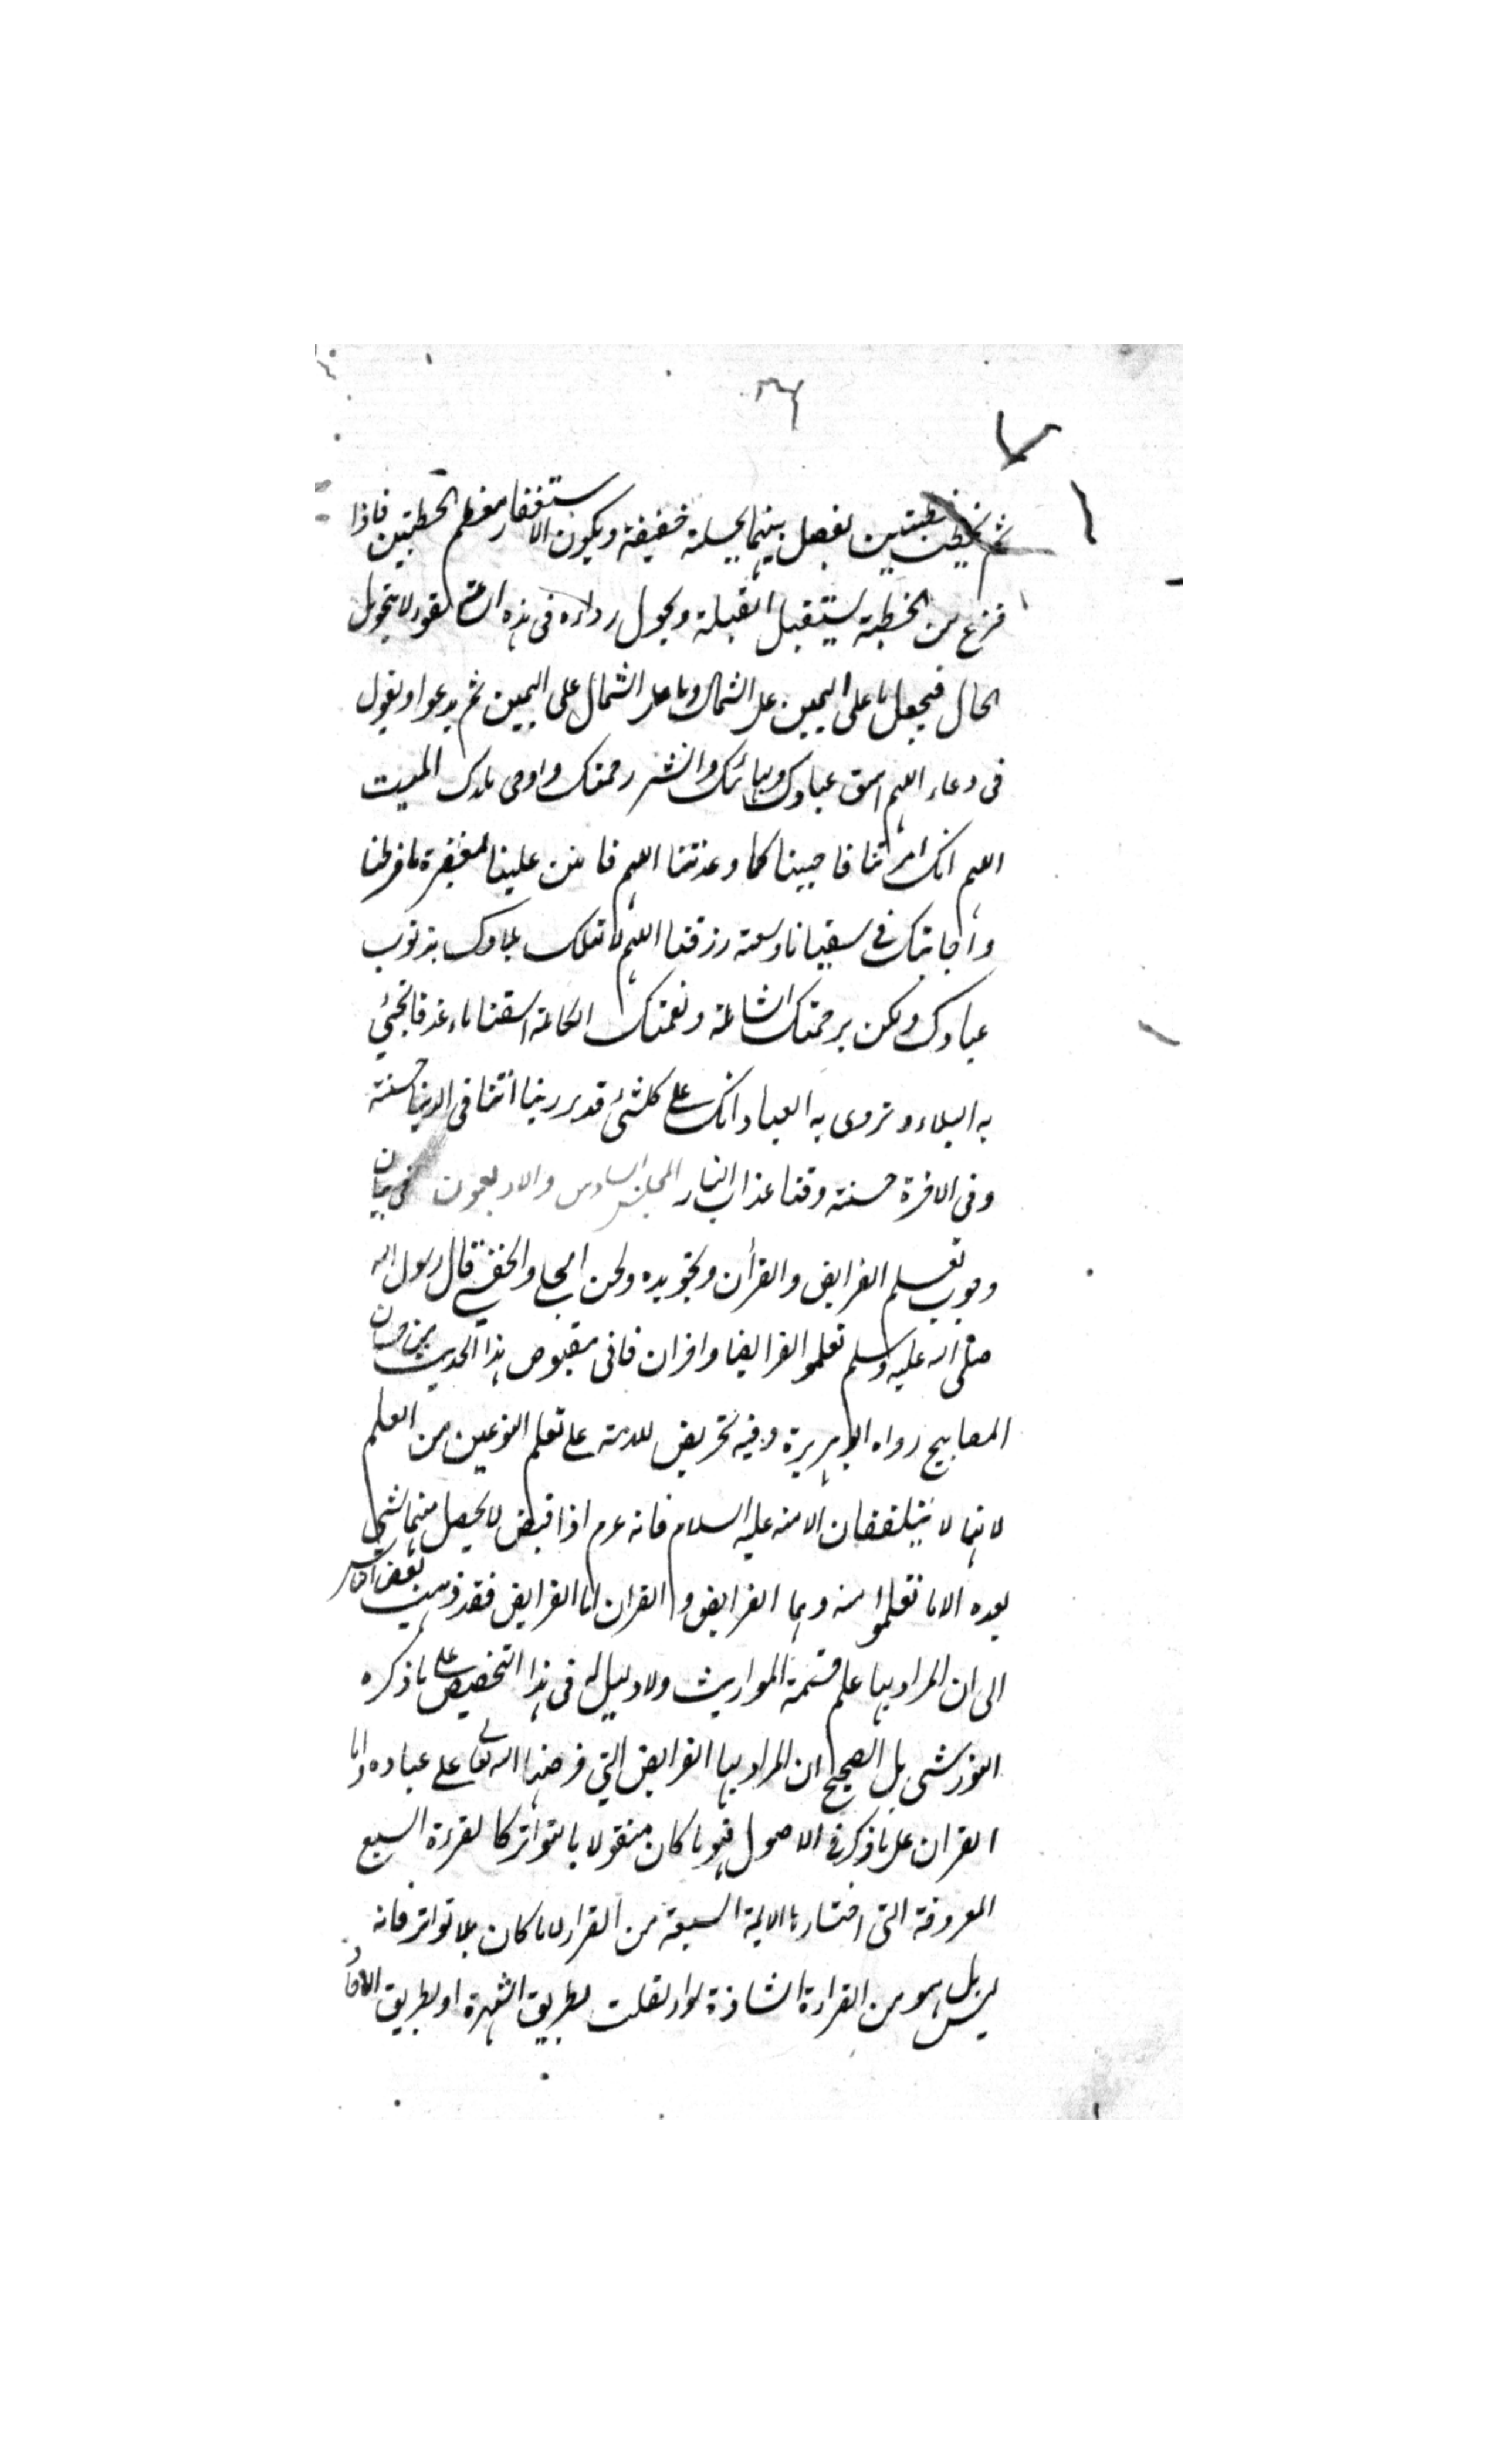 ثم يخطب خطبتين يفصل بينهما بجلسة خفيفة ويكون الاستغفار معظم الخطبتين فاذا
فرغ من الخطبة يستقبل القبلة ويحول رداءه فى هذه الساعة تفولا بتحويل
الحال فيجعل ما على اليمين على الشمال وما على الشمال على اليمين ثم يدعوا ويقول
فى دعاء اللهم اسق عبادك وبهائمك وانشر رحمتك واحى بلدك الميت
اللهم انك امرتنا فاجبنا كما وعدتنا اللهم فامنن علينا لمغفرة ما فرطنا
واجابتك فى سقيانا وسعة رزقنا اللهم لا تهلك بلادك بذنوب
عبادك ولكن برحمتك الشاملة ونعمتك الكاملة اسقنا ماء غدقا تحيى
به البلاد وتروى به العباد انك على كلشئ قدير ربنا اتنا فى الدنيا حسنة
وفى الاخرة حسنة وقنا عذاب النار المجلس السادس والاربعون فى بيان
وجوب تعلم الفرايض والقرأن وتجويده ولحن الجلى والخفى قال رسول الله
صلى الله عليه وسلم تعلموا الفرايضا واقران فانى مقبوض هذا الحديث من حسان
المصابيح رواه ابو هريرة وفيه تحريض للامة على تعلم النوعين من العلم
لانهما لا يتلقفان الا منه عليه السلام فانه عرم اذا قبض لا يحصل منهما شئ
بعده الا ما تعلموا منه وهما الفرايض والقران اما الفرايض فقد ذهب بعض الناس
الى ان المراد بها علم قسمة المواريث ولا دليل له فى هذا التخصيص على ما ذكره
التورشى بل الصحيح ان المراد بها الفرايض التى فرضها الله تعالى على عباده واما
القران على ما ذكر فى الاصول فهو ما كان منقولا بالتواتر كالقرءة السبع
المعروفة التى اختارها الايمة السبعة من القراء لا ما كان بلا تواتر فانه
ليس بل هو من القراءة الشاذة سواء نقلت بطريق الشهرة او بطريق الاحاد